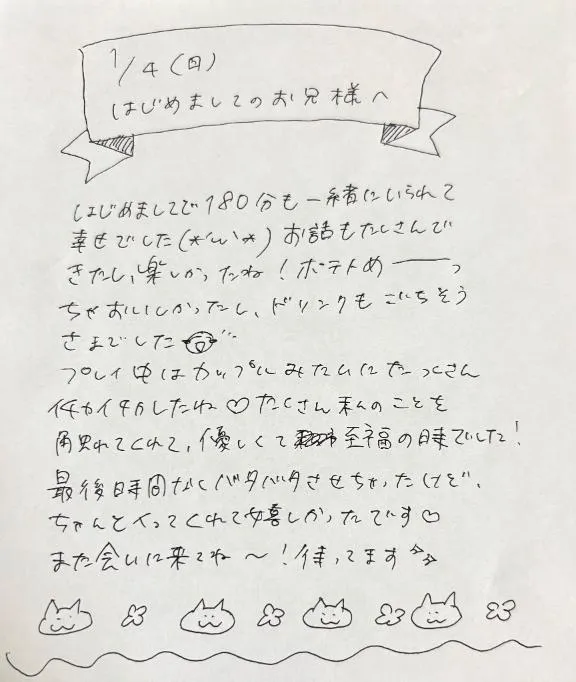 1/4(日)
はじめましてのお兄様へ
はじめましてで180分も一緒にいられて
幸せでした(*´ω`*) お話もたくさんで
きたし、楽しかったね!ポテトめーーっ
ちゃおいしかったし、ドリンクもごちそう
さまでした
プレイ中はカップルみたいにたっくさん
イチャイチャしたね♡たくさん私のことを
触れてくれて、優しくて 至福の時でした!
最後時間なくバタバタさせちゃったけど、
ちゃんとイってくれて嬉しかったです♡
また会いに来てね〜!待ってます